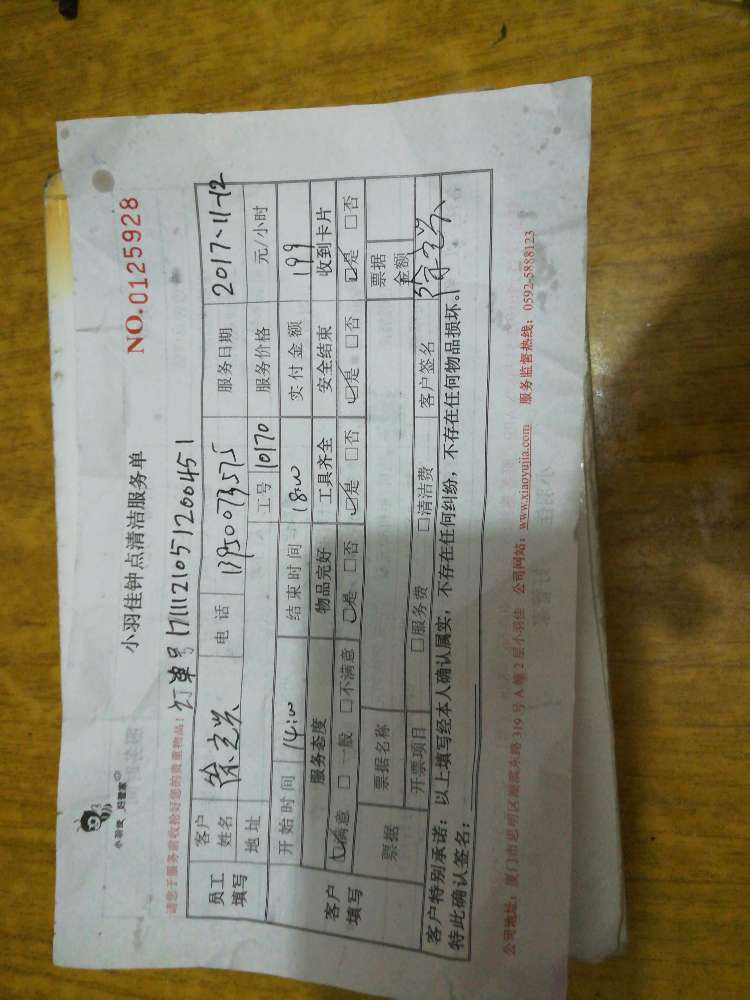 小羽佳 好管家
小羽佳钟点清洁服务单
NO.0125928
请您于服务前收拾好您的贵重物品!
订单号171112105120045 1
员工填写
客户姓名
电话 13950073575
服务日期 2017-11-12
地址
工号 10170
服务价格 元/小时
开始时间 14:00
结束时间 18:00
实付金额 199
客户填写
服务态度 物品完好 工具齐全 安全结束 收到卡片
☑满意 □一般 □不满意 ☑是 □否 ☑是 □否 ☑是 □否 ☑是 □否
票据
票据名称
票据金额
开票项目 □服务费 □清洁费 客户签名
客户特别承诺:以上填写经本人确认属实,不存在任何纠纷,不存在任何物品损坏。
特此确认签名:
公司地址:厦门市思明区湖滨东路319号A幢2层小羽佳 公司网站:www.xiaoyujia.com 服务监督热线:0592-5888123